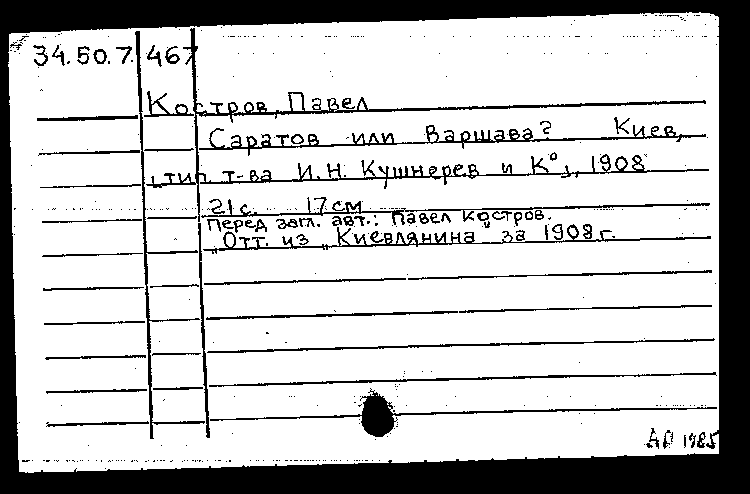 34.50.7. 467
Костров, Павел
Саратов или Варшава? Киев,
[тип. т-ва И.Н. Кушнерев и К°], 1908
21 с. 17 см
Перед загл. авт.: Павел Костров.
"Отт. из „Киевлянина" за 1908 г.
АП 1985